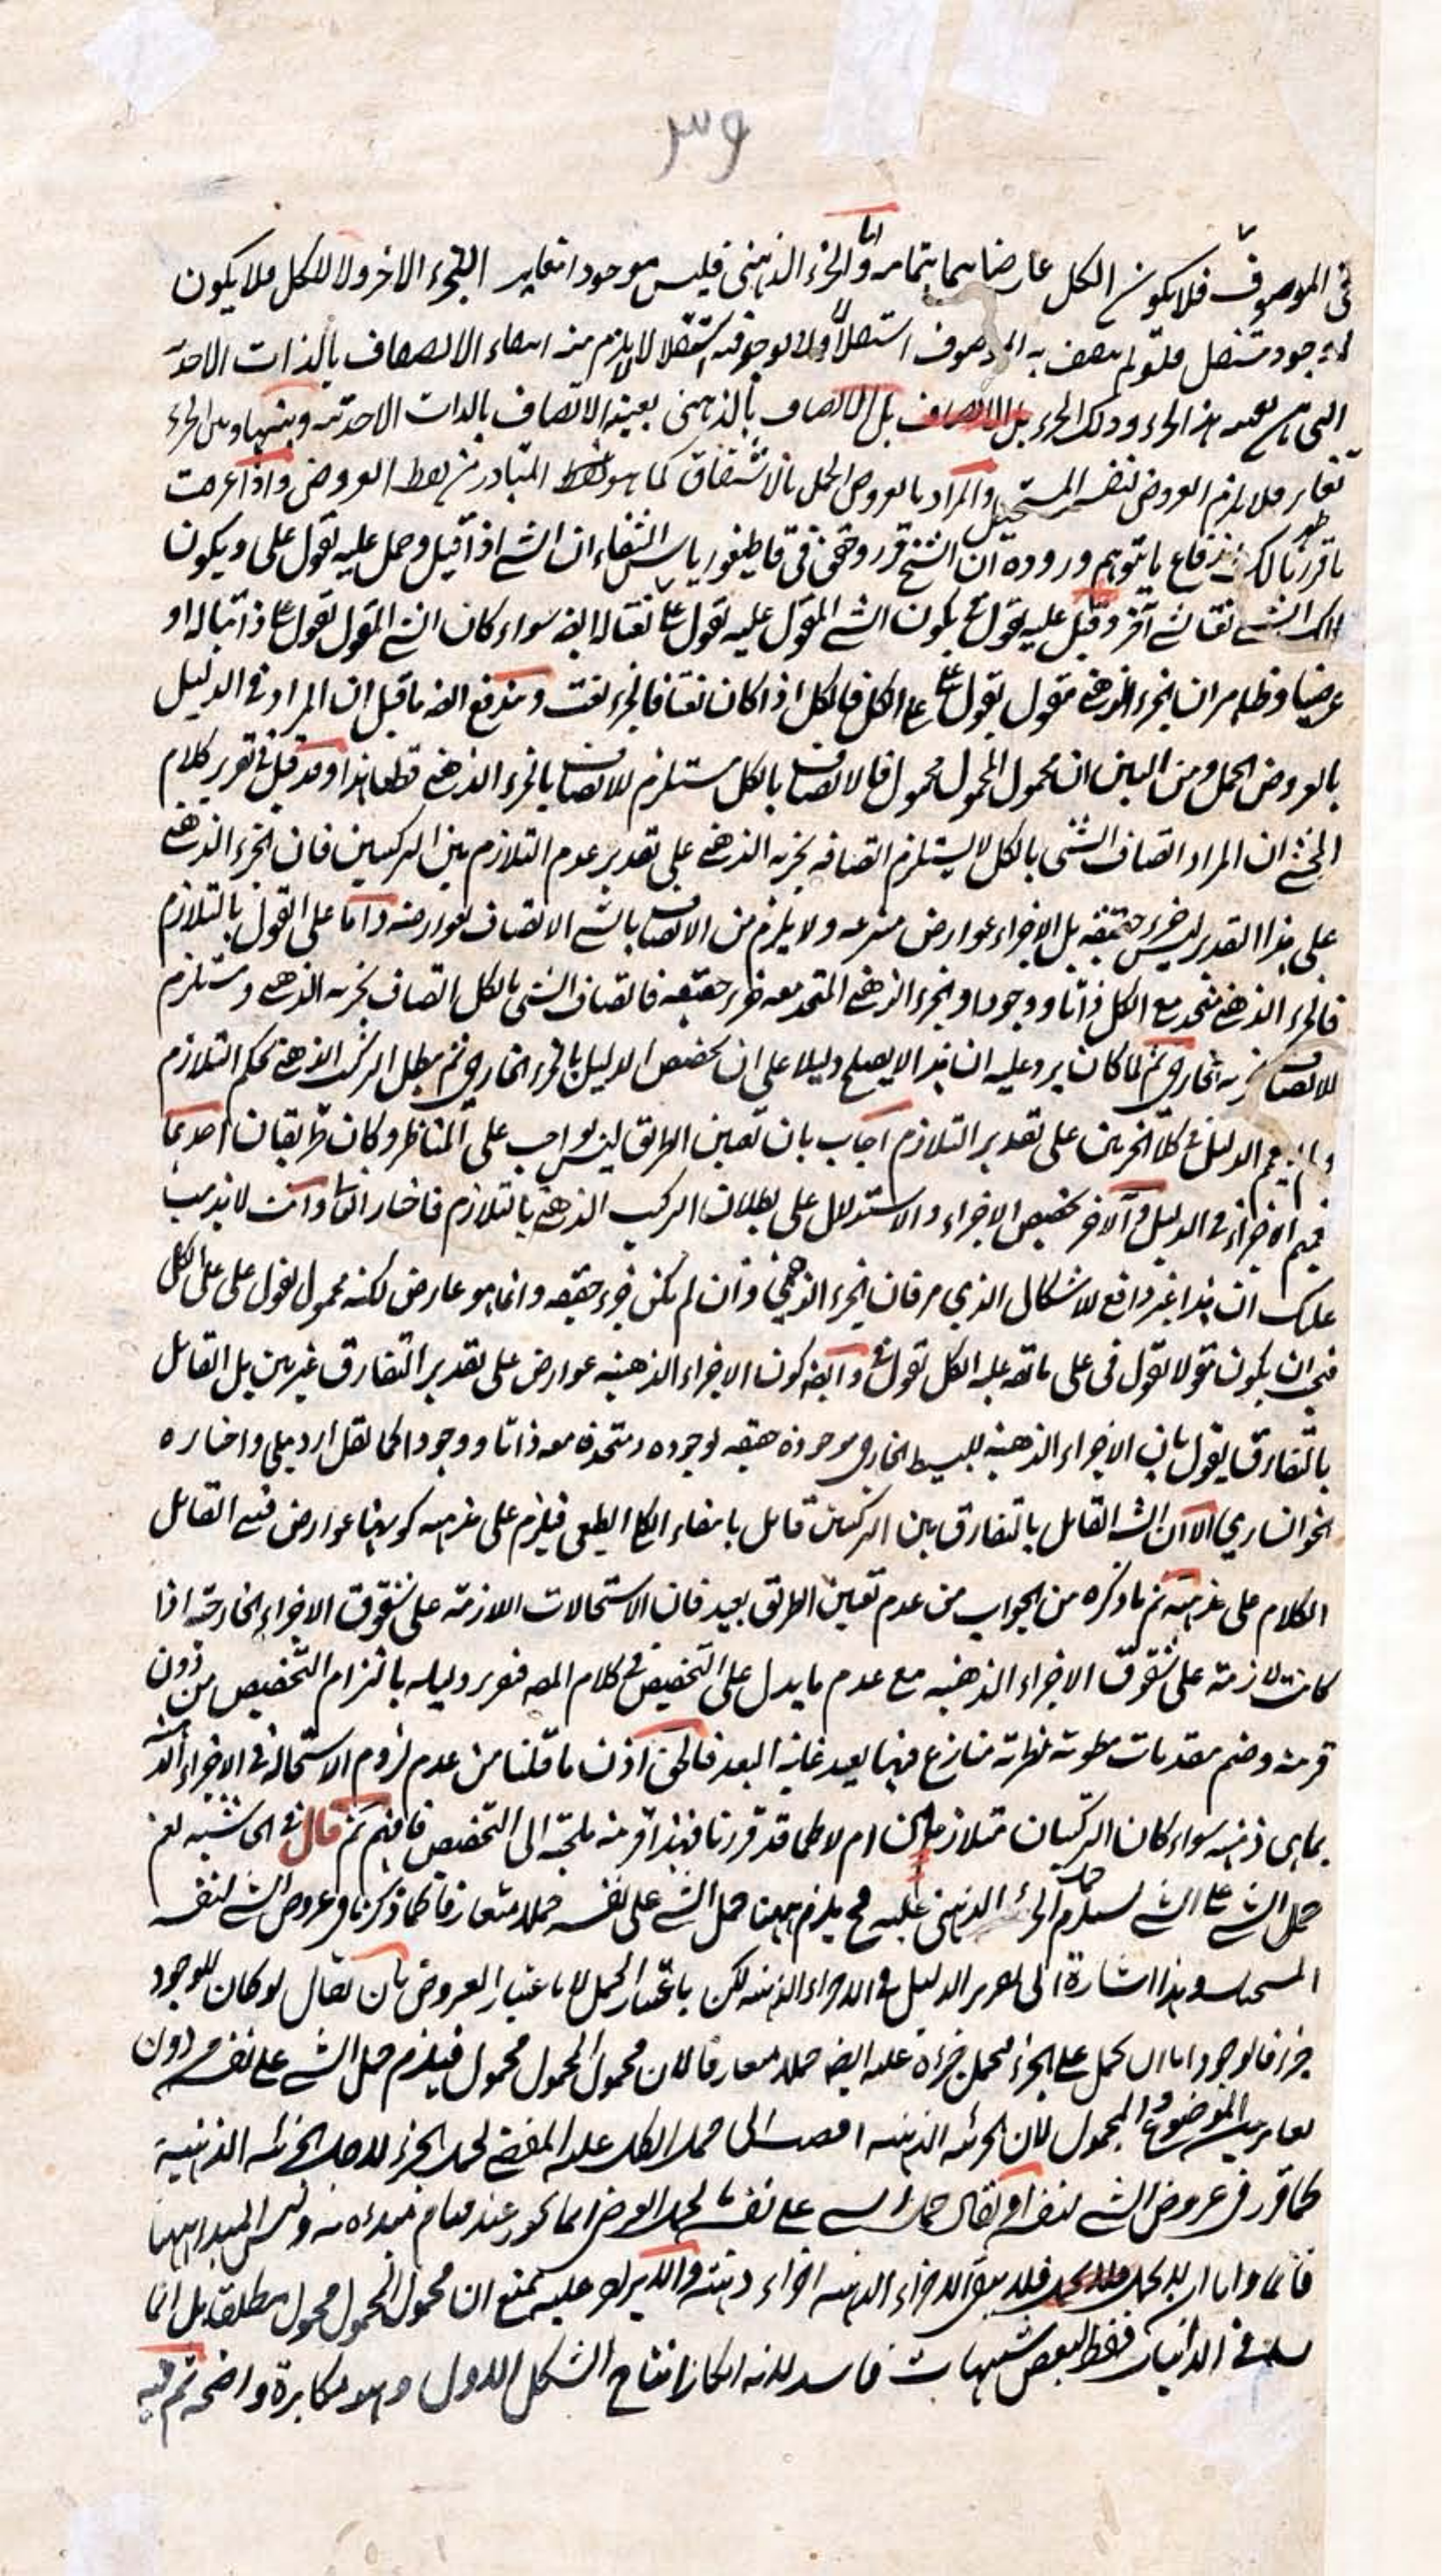 ٣٩
في الموصوف فلا يكون الكل عارضا بتمامه واما الجزء الذهني فليس موجودا مغاير الجزء الاخر ولا للكل فلا يكون
وجود مستقل فلو لم يتصف به الموصوف استقلالا لا يلزم منه انتفاء الاتصاف بالذات الاحدية
التي هي بعينه هذا الجزء وذلك الجزء بل الاتصاف بالذهني بعينه الاتصاف بالذات الاحدية وبينها وبين الجزء
تغاير فلا يلزم العروض لنفسه المستحيل والمراد بالعروض الحمل بالاشتقاق كما هو المتبادر من لفظ العروض واذا عرفت
ما قررنا لك ظهر اندفاع ما يتوهم وروده ان الشيخ قرر وحقق في قاطيغورياس الشفاء ان الشئ اذا قيل وحمل عليه بقول على ويكون
ذلك الشئ نعتا لشئ آخر وقيل عليه بقول في يكون الشئ المقول عليه بقول على نعتا له ايضا سواء كان الشئ المقول بقول على ذاتيا له او
عرضيا وظاهر ان الجزء الذهني مقول بقول على على الكل فالكل اذا كان نعتا فالجزء نعت ويندفع ايضا ما قيل ان المراد في الدليل
بالعروض الحمل ومن البين ان محمول المحمول محمول فالاتصاف بالكل مستلزم للاتصاف بالجزء الذهني قطعا هذا وقد قيل في تقرير كلام
المحشي ان المراد اتصاف الشئ بالكل لا يستلزم اتصافه بجزئه الذهني على تقدير عدم التلازم بين التركيبين فان الجزء الذهني
على هذا التقدير ليس جزء حقيقة بل الاجزاء عوارض منتزعة ولا يلزم من الاتصاف بالشئ الاتصاف بعوارضه واما على القول بالتلازم
فالجزء الذهني متحد مع الكل ذاتا ووجودا والجزء الذهني المتحد معه جزء حقيقة فاتصاف الشئ بالكل اتصاف بجزئه الذهني ومستلزم
للاتصاف بجزئه الخارجي ثم لما كان يرد عليه ان هذا لا يصلح دليلا على ان تخصيص الدليل بالجزء الخارجي ثم يبطل التركيب الذهني بحكم التلازم
يعم الدليل في كلا الجزئين على تقدير التلازم اجاب بان تعيين الطريق ليس بواجب على المناظر وكان طريقان احدهما
تعميم الاجزاء في الدليل والآخر تخصيص الاجزاء والاستدلال على بطلان التركيب الذهني بالتلازم فاختار الثاني وانت لا يذهب
عليك ان هذا غير دافع للاشكال الذي مر فان الجزء الذهني وان لم يكن جزء حقيقة وانما هو عارض لكنه محمول بقول على على الكل
فيجب ان يكون مقولا بقول في على ما يقال عليه الكل بقول في وايضا كون الاجزاء الذهنية عوارض على تقدير التفارق غير بين بل القائل
بالتفارق يقول بان الاجزاء الذهنية للبسيط الخارجي موجودة حقيقة لوجوده ومتحدة معه ذاتا ووجودا كما نقل اردبيلي واختاره
الخوانساري الا ان الشئ القائل بالتفارق بين التركيبين قائل بانتفاء الكلي الطبعي فيلزم على مذهبه كونها عوارض فبني القائل
الكلام على مذهبه ثم ما ذكره من الجواب من عدم تعيين الطريق بعيد فان الاستحالات اللازمة على شقوق الاجزاء الخارجية اذا
كانت لازمة على شقوق الاجزاء الذهنية مع عدم ما يدل على التخصيص في كلام المصنف فتقرير دليله بالتزام التخصيص من دون
قرينة وضم مقدمات مطوية نظرية منازع فيها بعيد غاية البعد فالحق اذن ما قلنا من عدم لزوم الاستحالة في الاجزاء الذهنية
بما هي ذهنية سواء كان التركيبان متلازمين ام لا كما قد قررنا فهذا قرينة ملجئة الى التخصيص فافهم ثم قال في الحاشية نعم
حمل الشئ على الشئ يستلزم حمل الجزء الذهني عليه فح يلزم ههنا حمل الشئ على نفسه حملا متعارفا كما ذكرنا في عروض الشئ لنفسه
المستحيل وهذا اشارة الى تقرير الدليل في الاجزاء الذهنية لكن باعتبار الحمل لا باعتبار العروض بان يقال لو كان للوجود
جزء فالوجود اما ان يحمل على الجزء فيحمل جزءه عليه ايضا حملا متعارفا لان محمول المحمول محمول فيلزم حمل الشئ على نفسه من دون
تغاير بين الموضوع والمحمول لان الجزئية الذهنية افضت الى حمل الكل عليه المفضي لحمل الجزء لاجل الجزئية الذهنية
كما قرر في عروض الشئ لنفسه او يقال حمل الشئ على نفسه بالحمل العرضي انما يجوز عند قيام مبدءه به وليس المبدء ههنا
قائما واما ان لا يحمل فلا يبقى الاجزاء الذهنية اجزاء ذهنية والايراد عليه بمنع ان محمول المحمول محمول مطلقا بل انما
يسلم في الذاتيات فقط لبعض شبهات فاسد لانه انكار انتاج الشكل الاول وهو مكابرة واضحة ثم فيه